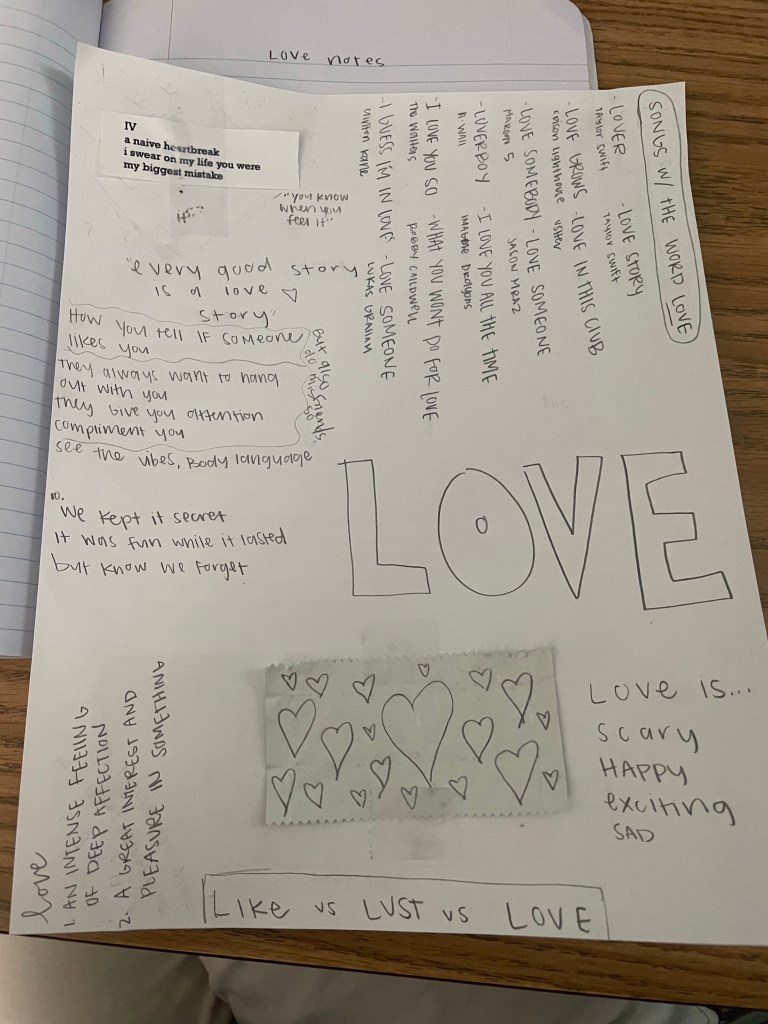 Love notes
IV
a naive heartbreak
i swear on my life you were
my biggest mistake
"you know
when you
feel it"
"every good story
is a love
story"
How you tell if someone
likes you
They always want to hang
out with you
They give you attention
compliment you
but also
friends
do this
so
see the vibes, Body language
10.
We kept it secret
It was fun while it lasted
but know we forget
SONGS W/ THE WORD LOVE
- LOVER
TAYLOR SWIFT
- LOVE STORY
TAYLOR SWIFT
- LOVE GROWS
EDISON LIGHTHOUSE
- LOVE IN THIS CLUB
USHER
- LOVE SOMEBODY
MAROON 5
- LOVE SOMEONE
JASON MRAZ
- LOVERBOY
A-WALL
- I LOVE YOU ALL THE TIME
IMAGINE DRAGONS
- I LOVE YOU SO
THE WALTERS
- WHAT YOU WONT DO FOR LOVE
BOBBY CALDWELL
- I GUESS I'M IN LOVE
CLINTON KANE
- LOVE SOMEONE
LUKAS GRAHAM
LOVE
LOVE IS...
scary
HAPPY
exciting
SAD
love
1. AN INTENSE FEELING
OF DEEP AFFECTION
2. A GREAT INTEREST AND
PLEASURE IN SOMETHING
LIKE vs LUST vs LOVE